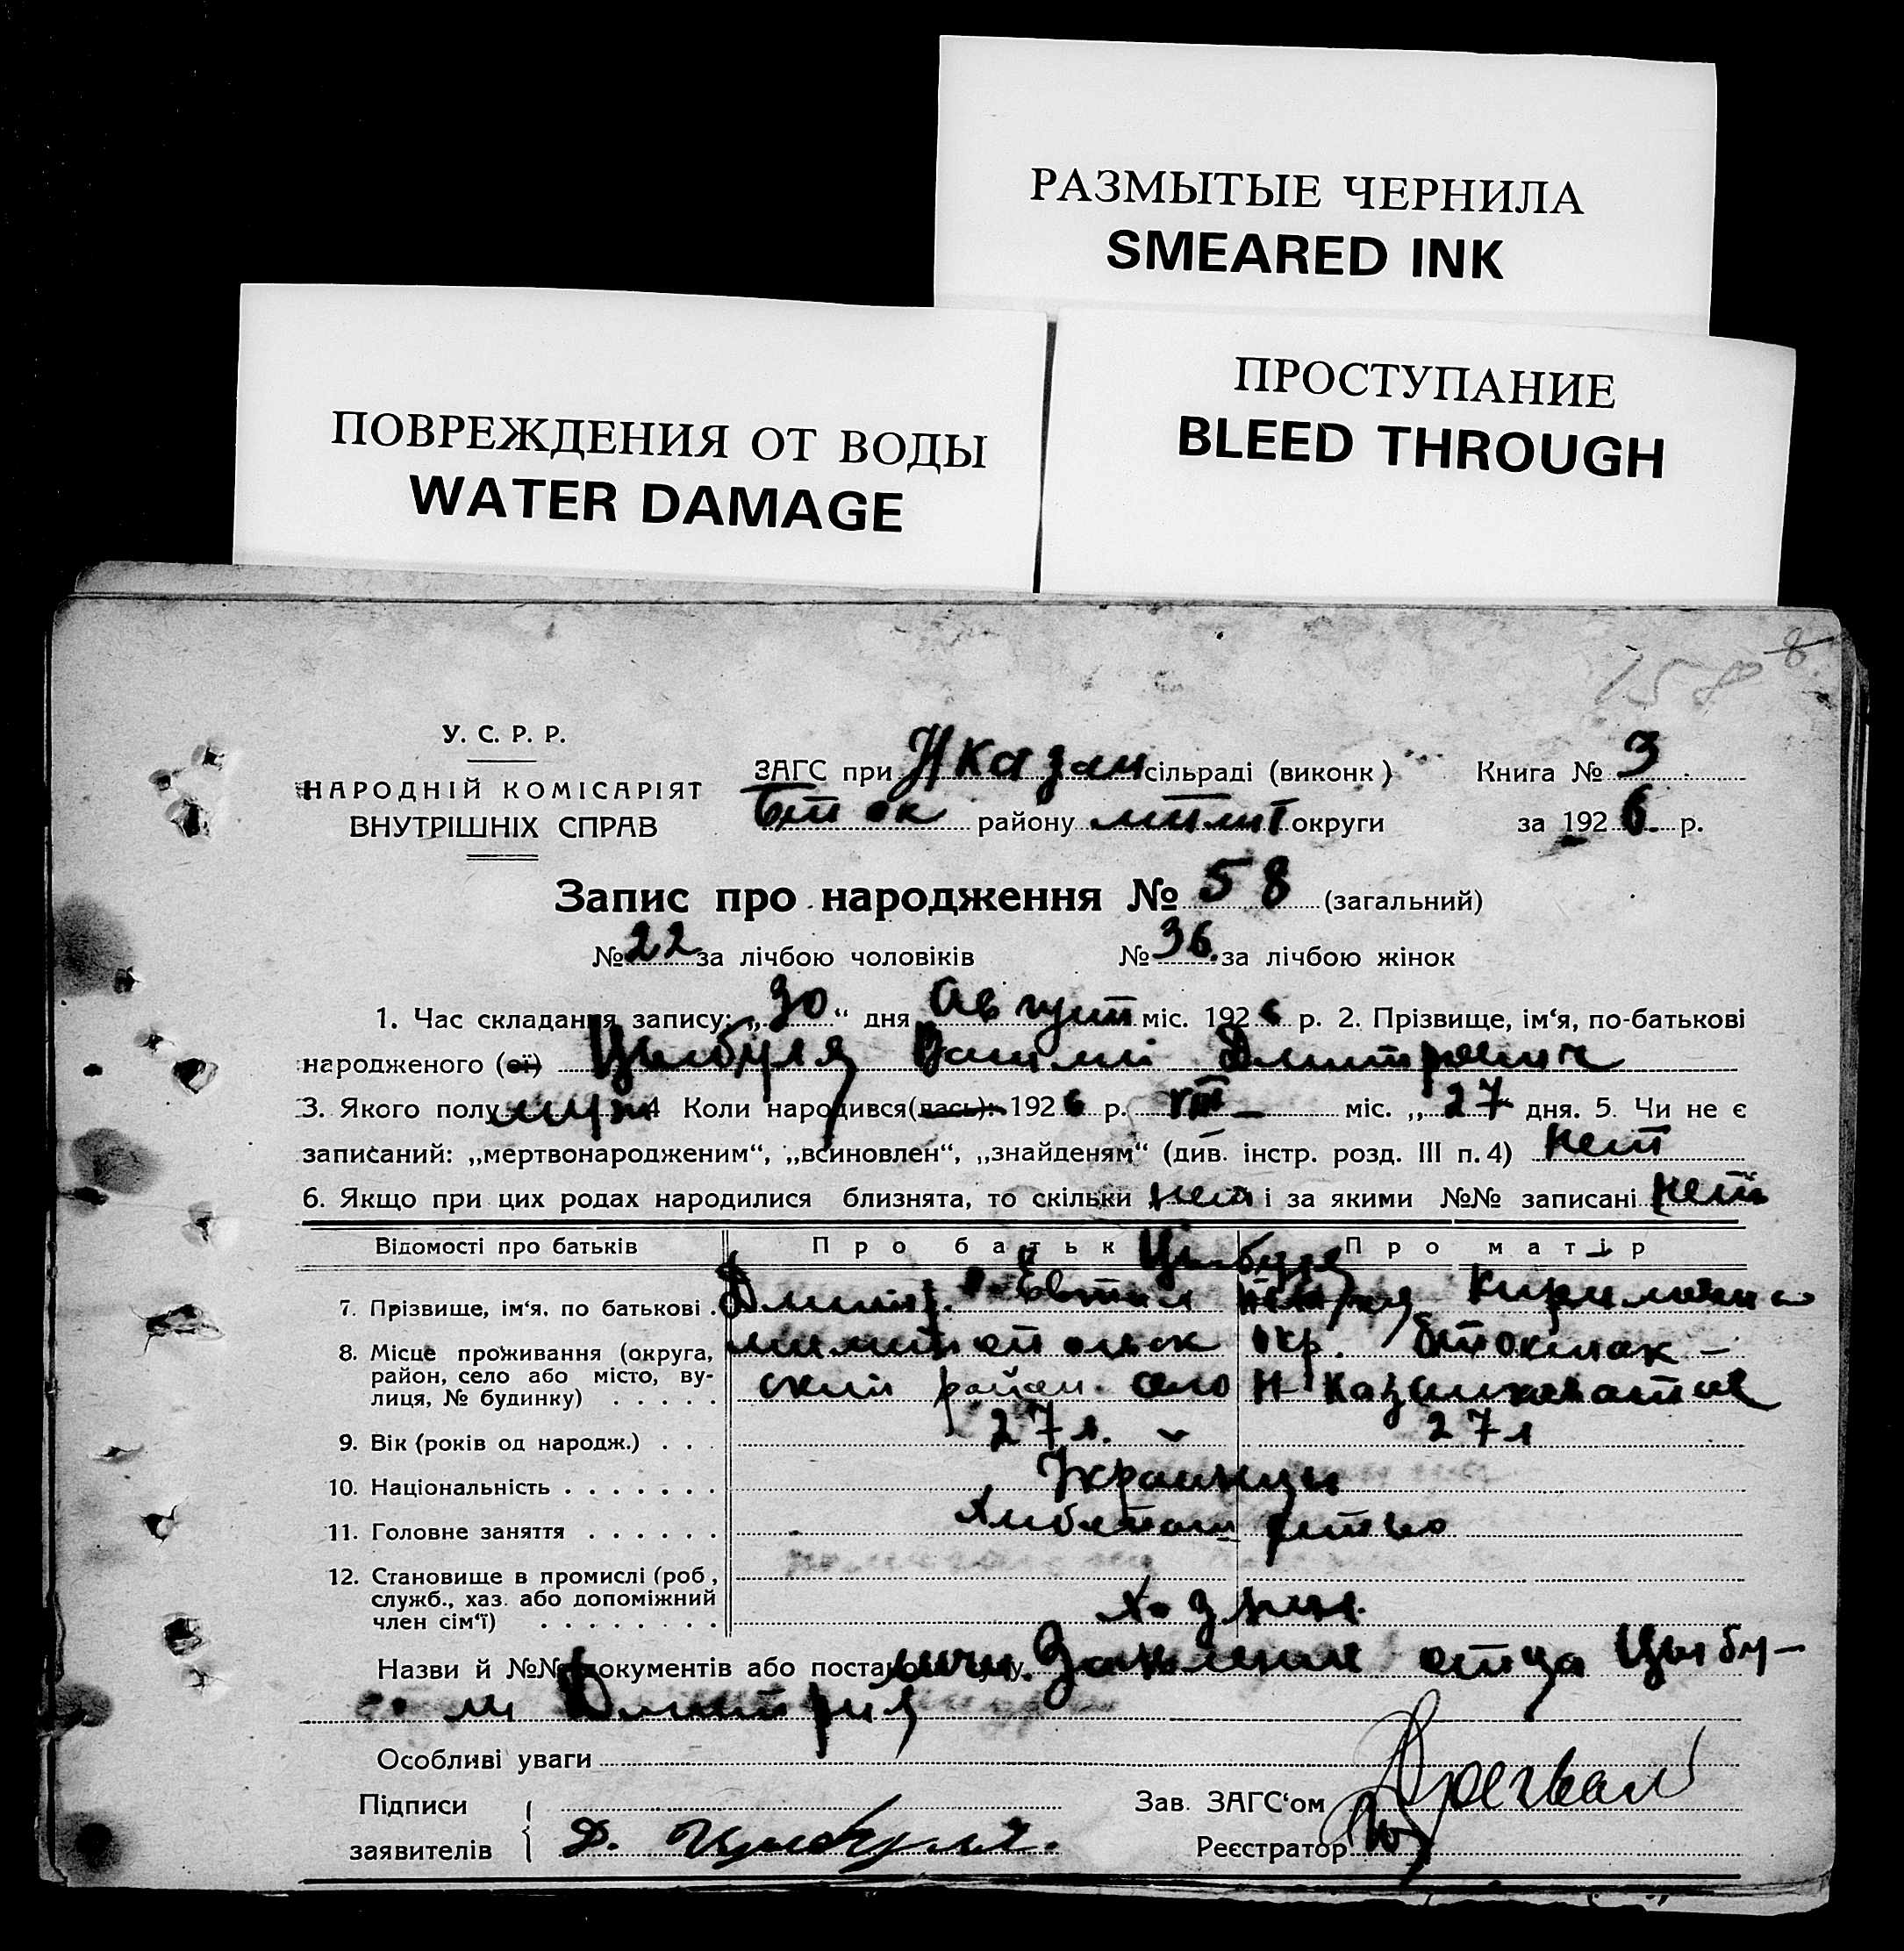 РАЗМЫТЫЕ ЧЕРНИЛА
SMEARED INK
ПОВРЕЖДЕНИЯ ОТ ВОДЫ
WATER DAMAGE
ПРОСТУПАНИЕ
BLEED THROUGH
158 8
У. С. Р. Р.
НАРОДНІЙ КОМІСАРІЯТ
ВНУТРІШНІХ СПРАВ
ЗАГС при Н Казан сільраді (виконк) Книга № 3
Бток району округи за 1926 р.
Запис про народження № 58 (загальний)
№ 22 за лічбою чоловіків № 36 за лічбою жінок
1. Час складання запису: „30“ дня Август міс. 1926 р. 2. Прізвище, ім‘я, по-батькові
народженого (ої) Цыбуля Василий Дмитриевич
3. Якого полу муж 4 Коли народився(лась): 1926 р. VIII міс. „27 дня. 5. Чи не є
записаний: „мертвонародженим“, „всиновлен“, „знайденям“ (див. інстр. розд. III п. 4) нет
6. Якщо при цих родах народилися близнята, то скільки нет і за якими №№ записані нет
Відомості про батьків Про батьк Про матір
Цыбуля
7. Прізвище, ім‘я, по батькові . Дмитр.
8. Місце проживання (округа, район, село або місто, вулиця, № будинку) . . . . . окр. Бтокмак-
ский район село Н Казанковатое
9. Вік (років од народж.) . . . 27 л. 27 л
10. Національність . . . . . . . Украинцы
11. Головне заняття . . . . . .
12. Становище в промислі (роб., служб., хаз. або допоміжний член сім‘ї) . . . . . . . .
Назви й №№ документів або Заявление отца Цыбу-
ли Дмитрия
Особливі уваги
Підписи заявителів Д. Цыбуля.
Зав. ЗАГС‘ом
Реєстратор